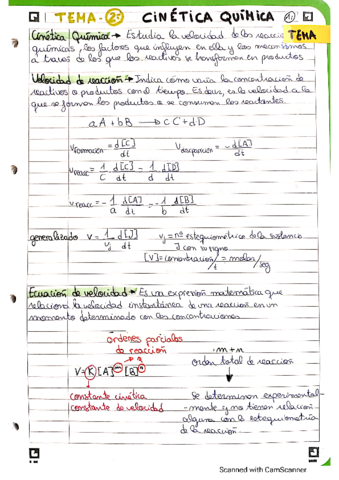 TEMA-2: CINÉTICA QUÍMICA
Cinética Química → Estudia la velocidad de las reacc TEMA
químicas, los factores que influyen en ella y los mecanismos
a través de los que los reactivos se transforman en productos
Velocidad de reacción → Indica cómo varía la concentración de
reactivos o productos con el tiempo. Es decir, es la velocidad a la
que se forman los productos o se consumen los reactantes.
aA + bB → cC + dD
Vformación = d[C]/dt Vdesaparición = - d[A]/dt
Vreacc = 1/C · d[C]/dt = 1/d · d[D]/dt
Vreacc = - 1/a · d[A]/dt = - 1/b · d[B]/dt
generalizado V = 1/νj · d[J]/dt νj = nº estequiométrico de la sustancia
J con su signo
[V] = concentración/t = moles/l/seg
Ecuación de velocidad → Es una expresión matemática que
relaciona la velocidad instantánea de una reacción en un
momento determinado con las concentraciones.
ordenes parciales
de reacción
m + n
orden total de reacción
V = K [A]ᵐ [B]ⁿ
constante cinética
constante de velocidad
Se determinan experimental-
-mente y no tienen relación
alguna con la estequiometría
de la reacción
Scanned with CamScanner